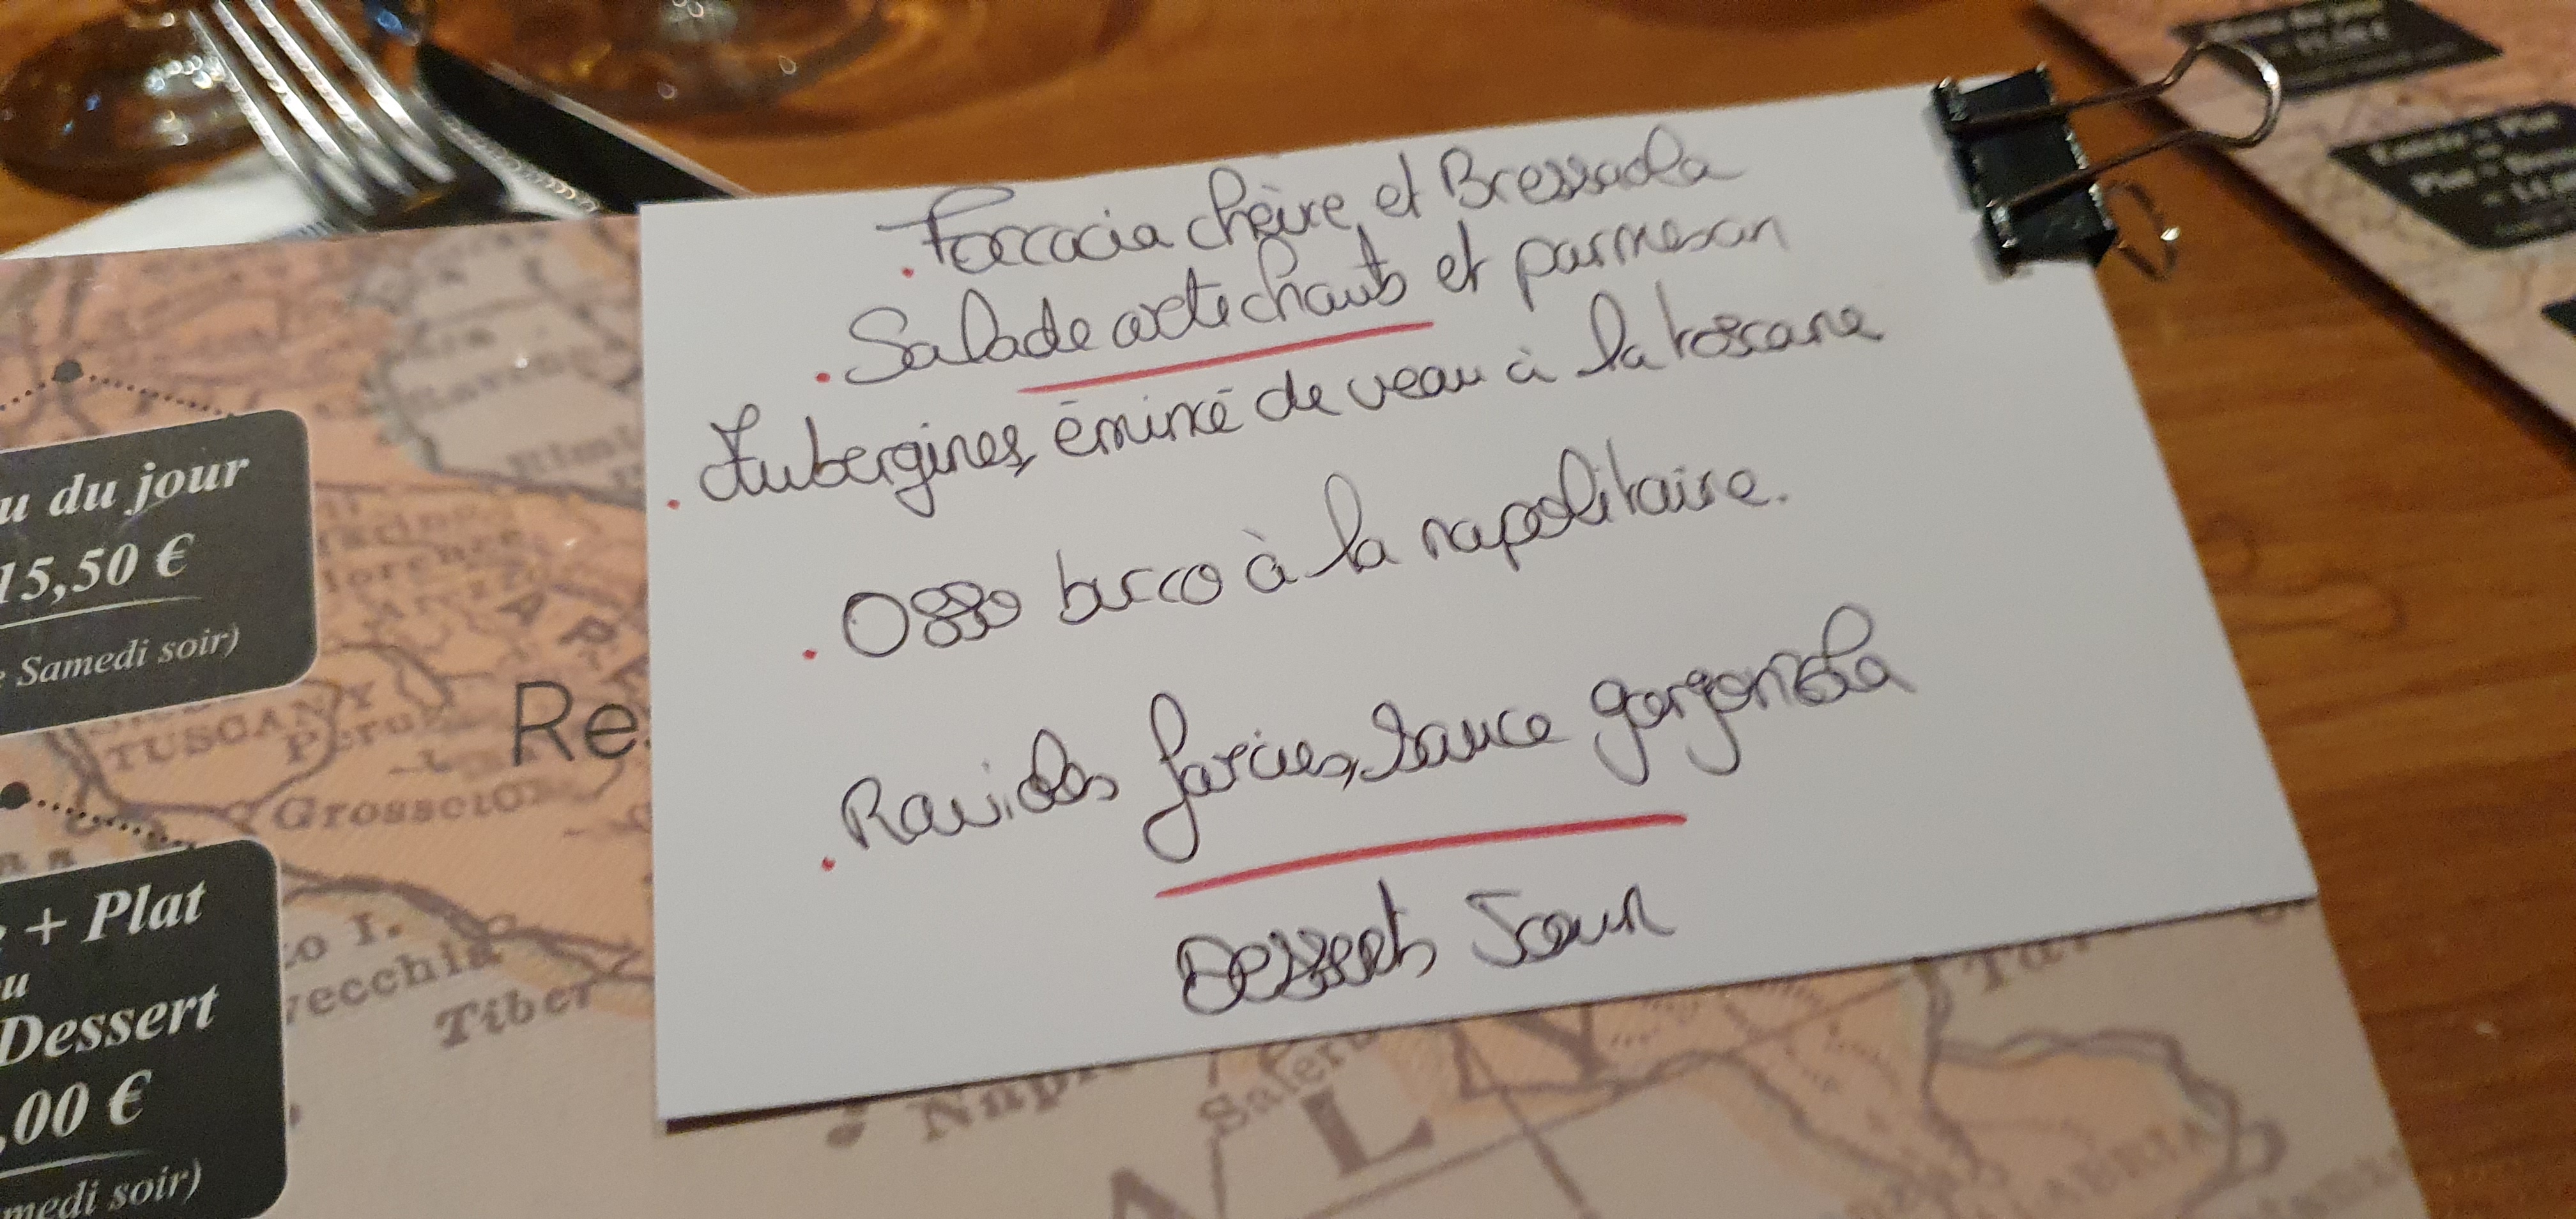 Foccacia chèvre et Bressaola
. Salade artichauts et parmesan
. Aubergines, émincé de veau à la toscane
. Osso bucco à la napolitaine.
. Ravioles farcies, sauce gorgonzola
Desserts Jour
u du jour
15,50 €
Samedi soir)
Re
+ Plat
u
Dessert
,00 €
medi soir)
TUSCANY
Peru
Grosseto
o I.
vecchia
Tiber
Salern